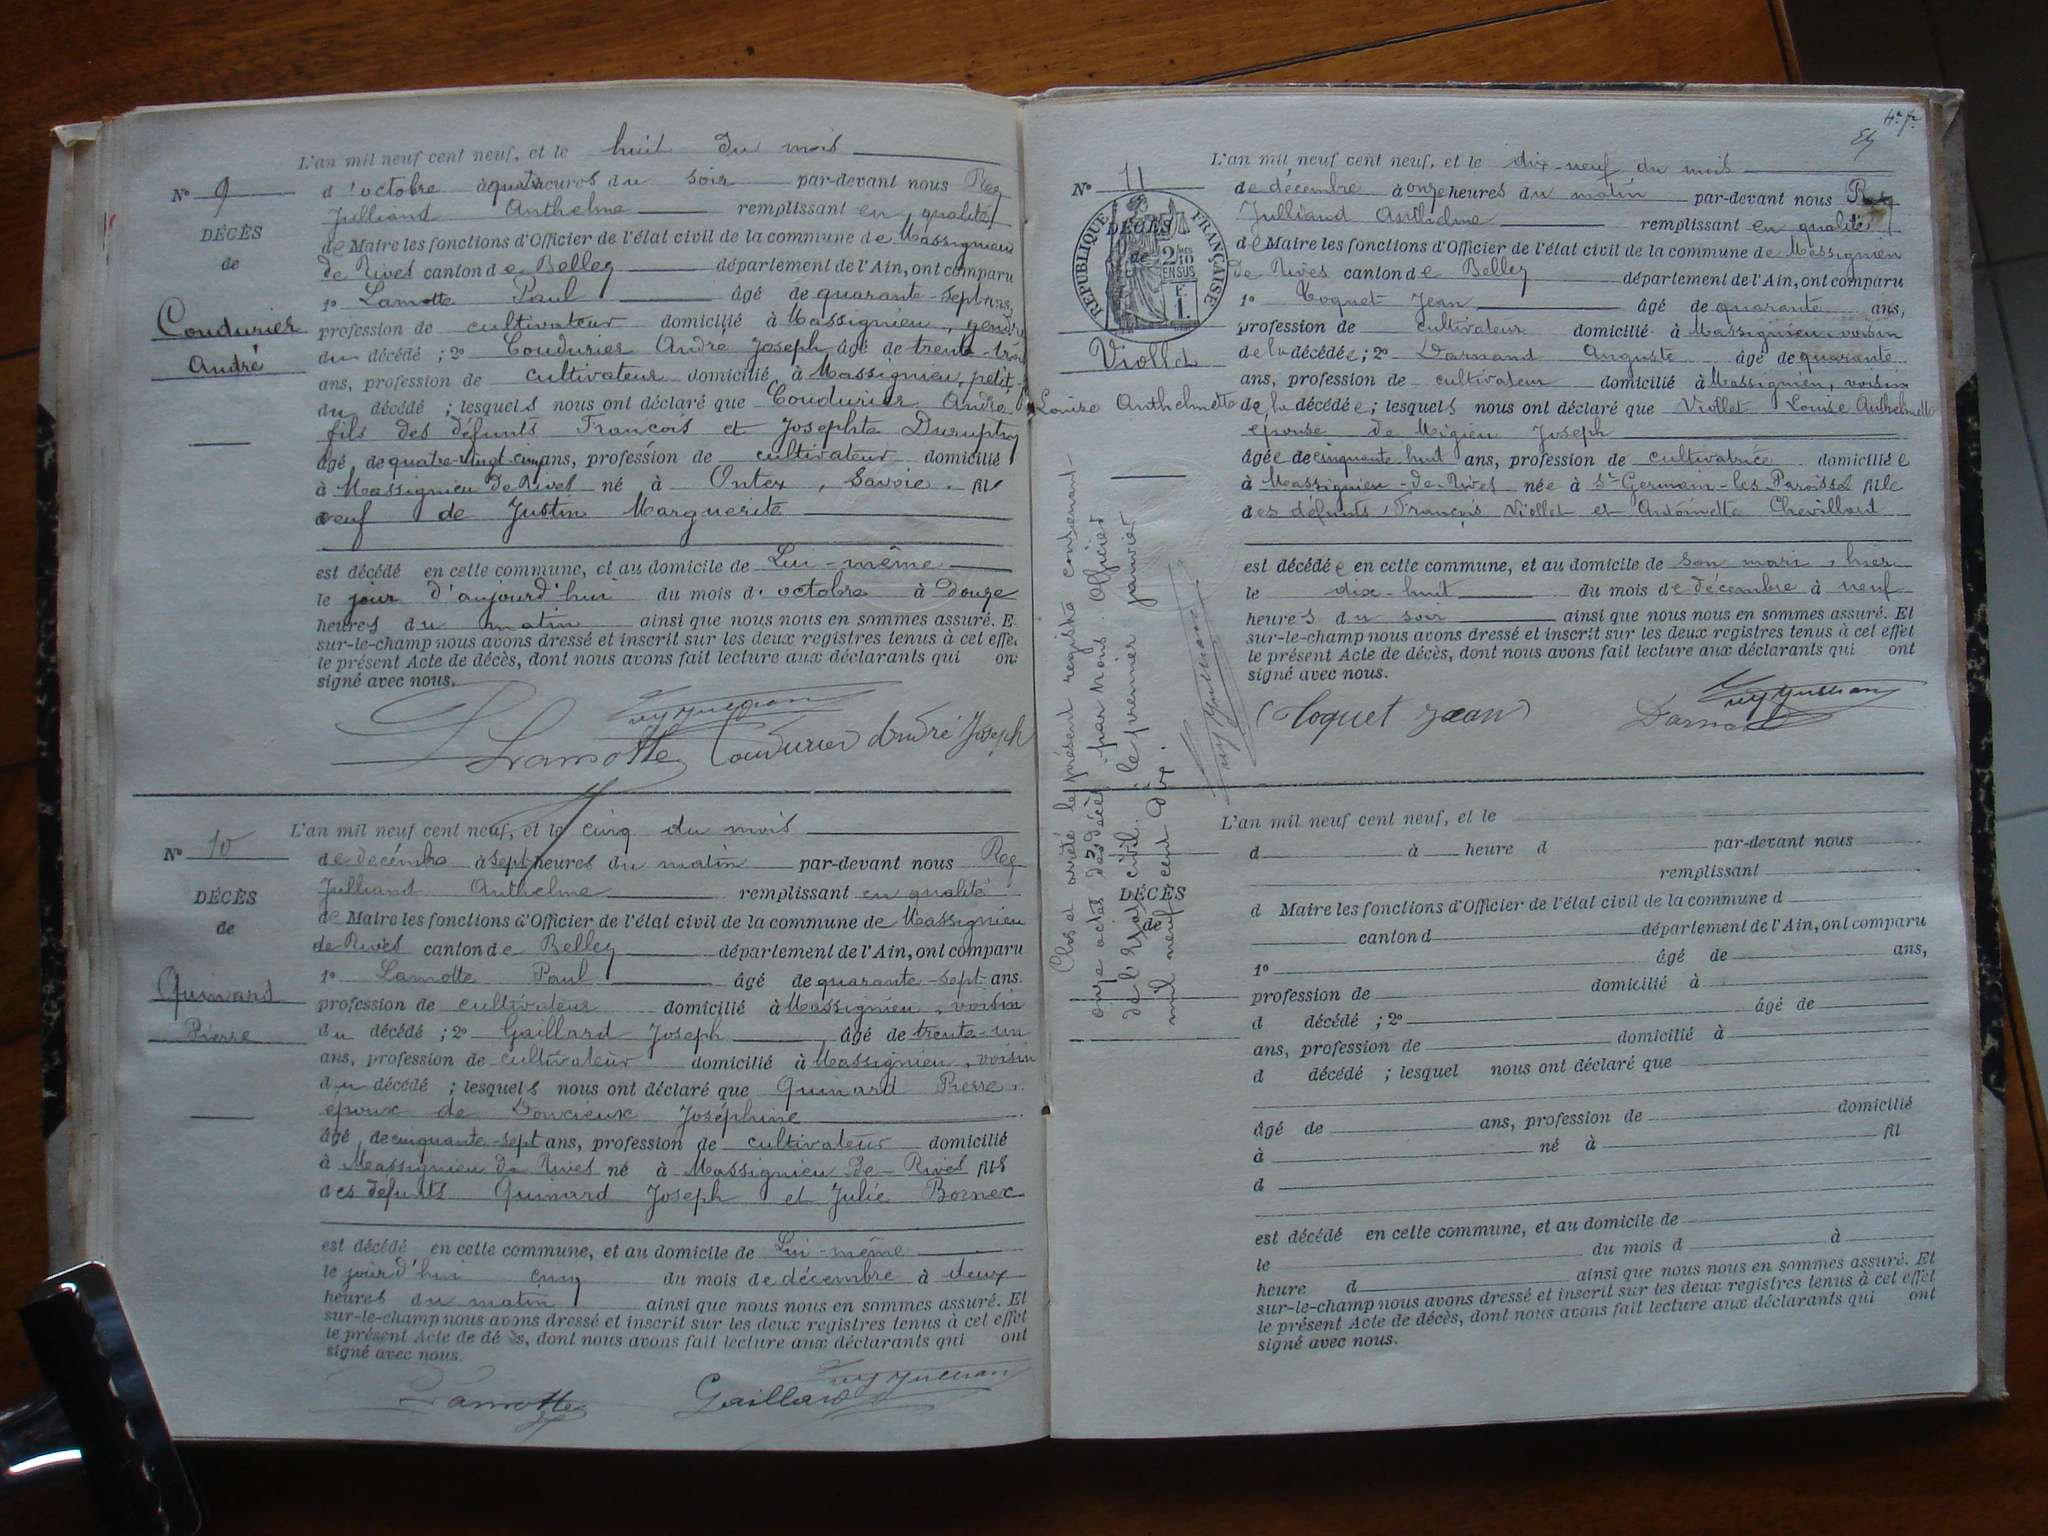 L'an mil neuf cent neuf, et le huit du mois
N° 9 d'octobre à quatre heures du soir par-devant nous
DÉCÈS de Coudurier André
Julliand Anthelme remplissant en qualité
de Maire les fonctions d'Officier de l'état civil de la commune de Massignieu
de Rives canton de Belley département de l'Ain, ont comparu
1° Lamotte Paul âgé de quarante-sept ans,
profession de cultivateur domicilié à Massignieu, gendre
du décédé ; 2° Coudurier André Joseph âgé de trente-trois
ans, profession de cultivateur domicilié à Massignieu, petit-
du décédé ; lesquels nous ont déclaré que Coudurier André
fils des défunts François et Josephte
âgé de quatre-vingt-cinq ans, profession de cultivateur domicilié
à Massignieu de Rives né à Ontex, Savoie. fil
veuf de Justin Marguerite
est décédé en cette commune, et au domicile de Lui-même
le jour d'aujourd'hui du mois d'octobre à Douze
heures du matin ainsi que nous nous en sommes assuré. E
sur-le-champ nous avons dressé et inscrit sur les deux registres tenus à cet effet
le présent Acte de décès, dont nous avons fait lecture aux déclarants qui ont
signé avec nous.
Lamotte Coudurier André Joseph
L'an mil neuf cent neuf, et le cinq du mois
N° 10 de décembre à sept heures du matin par-devant nous
DÉCÈS de Guinard Pierre
Julliand Anthelme remplissant en qualité
de Maire les fonctions d'Officier de l'état civil de la commune de Massignieu
de Rives canton de Belley département de l'Ain, ont comparu
1° Lamotte Paul âgé de quarante-sept ans.
profession de cultivateur domicilié à Massignieu, voisin
du décédé ; 2° Gaillard Joseph âgé de trente-un
ans, profession de cultivateur domicilié à Massignieu, voisin
du décédé ; lesquels nous ont déclaré que Guinard Pierre,
époux de Joséphine
âgé de cinquante-sept ans, profession de cultivateur domicilié
à Massignieu de Rives né à Massignieu-de-Rives fils
des défunts Guinard Joseph et Julie Bornex
est décédé en cette commune, et au domicile de Lui-même
le jour d'hui cinq du mois de décembre à deux
heures du matin ainsi que nous nous en sommes assuré. Et
sur-le-champ nous avons dressé et inscrit sur les deux registres tenus à cet effet
le présent Acte de décès, dont nous avons fait lecture aux déclarants qui ont
signé avec nous.
Lamotte Gaillard
L'an mil neuf cent neuf, et le dix-neuf du mois
N° 11 de décembre à onze heures du matin par-devant nous
RÉPUBLIQUE FRANÇAISE
DÉCÈS de Viollet Louise Anthelmette
Julliand Anthelme remplissant en qualité
de Maire les fonctions d'Officier de l'état civil de la commune de Massignieu
de Rives canton de Belley département de l'Ain, ont comparu
1° Toquet Jean âgé de quarante ans,
profession de cultivateur domicilié à Massignieu, voisin
de la décédée ; 2° Darnand Auguste âgé de quarante
ans, profession de cultivateur domicilié à Massignieu, voisin
de la décédée ; lesquels nous ont déclaré que Viollet Louise Anthelmette
épouse de Migieu Joseph
âgée de cinquante-huit ans, profession de cultivatrice domiciliée
à Massignieu-de-Rives née à St Germain-les-Paroisses fille
des défunts, François Viollet et Antoinette Chevillard
est décédée en cette commune, et au domicile de son mari, hier
le dix-huit du mois de décembre à neuf
heures du soir ainsi que nous nous en sommes assuré. Et
sur-le-champ nous avons dressé et inscrit sur les deux registres tenus à cet effet
le présent Acte de décès, dont nous avons fait lecture aux déclarants qui ont
signé avec nous.
Toquet Jean
Clos et arrêté le présent registre contenant
onze actes de décès par Nous Officier
de l'Etat civil, le premier janvier
mil neuf cent dix.
L'an mil neuf cent neuf, et le
d à heure d par-devant nous
DÉCÈS de
remplissant
d Maire les fonctions d'Officier de l'état civil de la commune d
canton d département de l'Ain, ont comparu
1° âgé de ans,
profession de domicilié à
d décédé ; 2° âgé de
ans, profession de domicilié à
d décédé ; lesquel nous ont déclaré que
âgé de ans, profession de domicilié
à né à fil
d
est décédé en cette commune, et au domicile de
le du mois d à
heure d ainsi que nous nous en sommes assuré. Et
sur-le-champ nous avons dressé et inscrit sur les deux registres tenus à cet effet
le présent Acte de décès, dont nous avons fait lecture aux déclarants qui ont
signé avec nous.